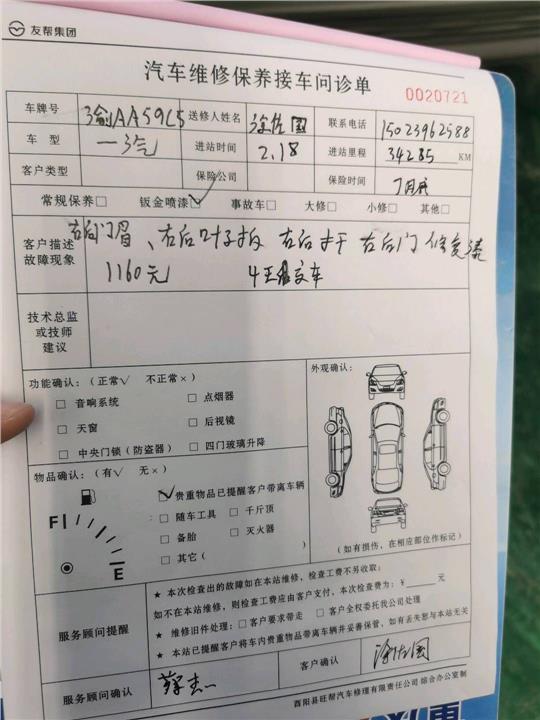 友帮集团
汽车维修保养接车问诊单
0020721
车牌号 渝AA59L5 送修人姓名 涂佐国 联系电话 15023962588
车 型 一汽 进站时间 2.18 进站里程 34285 KM
客户类型 保险公司 保险时间
常规保养□ 钣金喷漆☑ 事故车□ 大修□ 小修□ 其他□
客户描述
故障现象
右后门眉、右后叶子板 右后 右后门 修复漆
1160元
交车
技术总监
或技师
建议
功能确认:(正常√ 不正常×)
□ 音响系统 □ 点烟器
□ 天窗 □ 后视镜
□ 中央门锁(防盗器) □ 四门玻璃升降
外观确认:
(如有损伤,在相应部位作标记)
物品确认:(有√ 无×)
F E
☑ 贵重物品已提醒客户带离车辆
□ 随车工具 □ 千斤顶
□ 备胎 □ 灭火器
□ 其它( )
服务顾问提醒
★ 本次检查出的故障如在本站维修,检查工费不另收取;
如不在本站维修,则检查工费应由客户支付,本次检查费为:¥ 元
★ 维修旧件处理:□ 客户要求带走 □ 客户全权委托我公司处理
★ 本站已提醒客户将车内贵重物品带离车辆并妥善保管,如有丢失恕与本站无关
服务顾问确认 客户确认 涂佐国
酉阳县旺帮汽车修理有限责任公司 综合办公室制